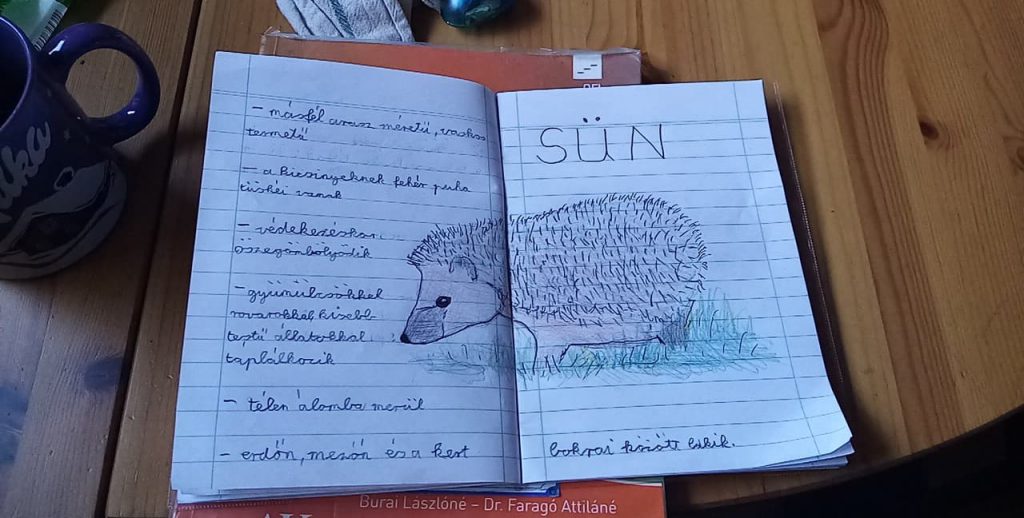 - másfél arasz méretű, vaskos
termetű
- a kicsinyeknek fehér puha
tüskéi vannak
- védekezéskor
összegömbölyödik
- gyümülcsökkel
rovarokkal kisebb
testű állatokkal
táplálkozik
- télen álomba merül
- erdőn, mezőn és a kert
SÜN
bokrai között lakik.
Burai Lászlóné – Dr. Faragó Attiláné